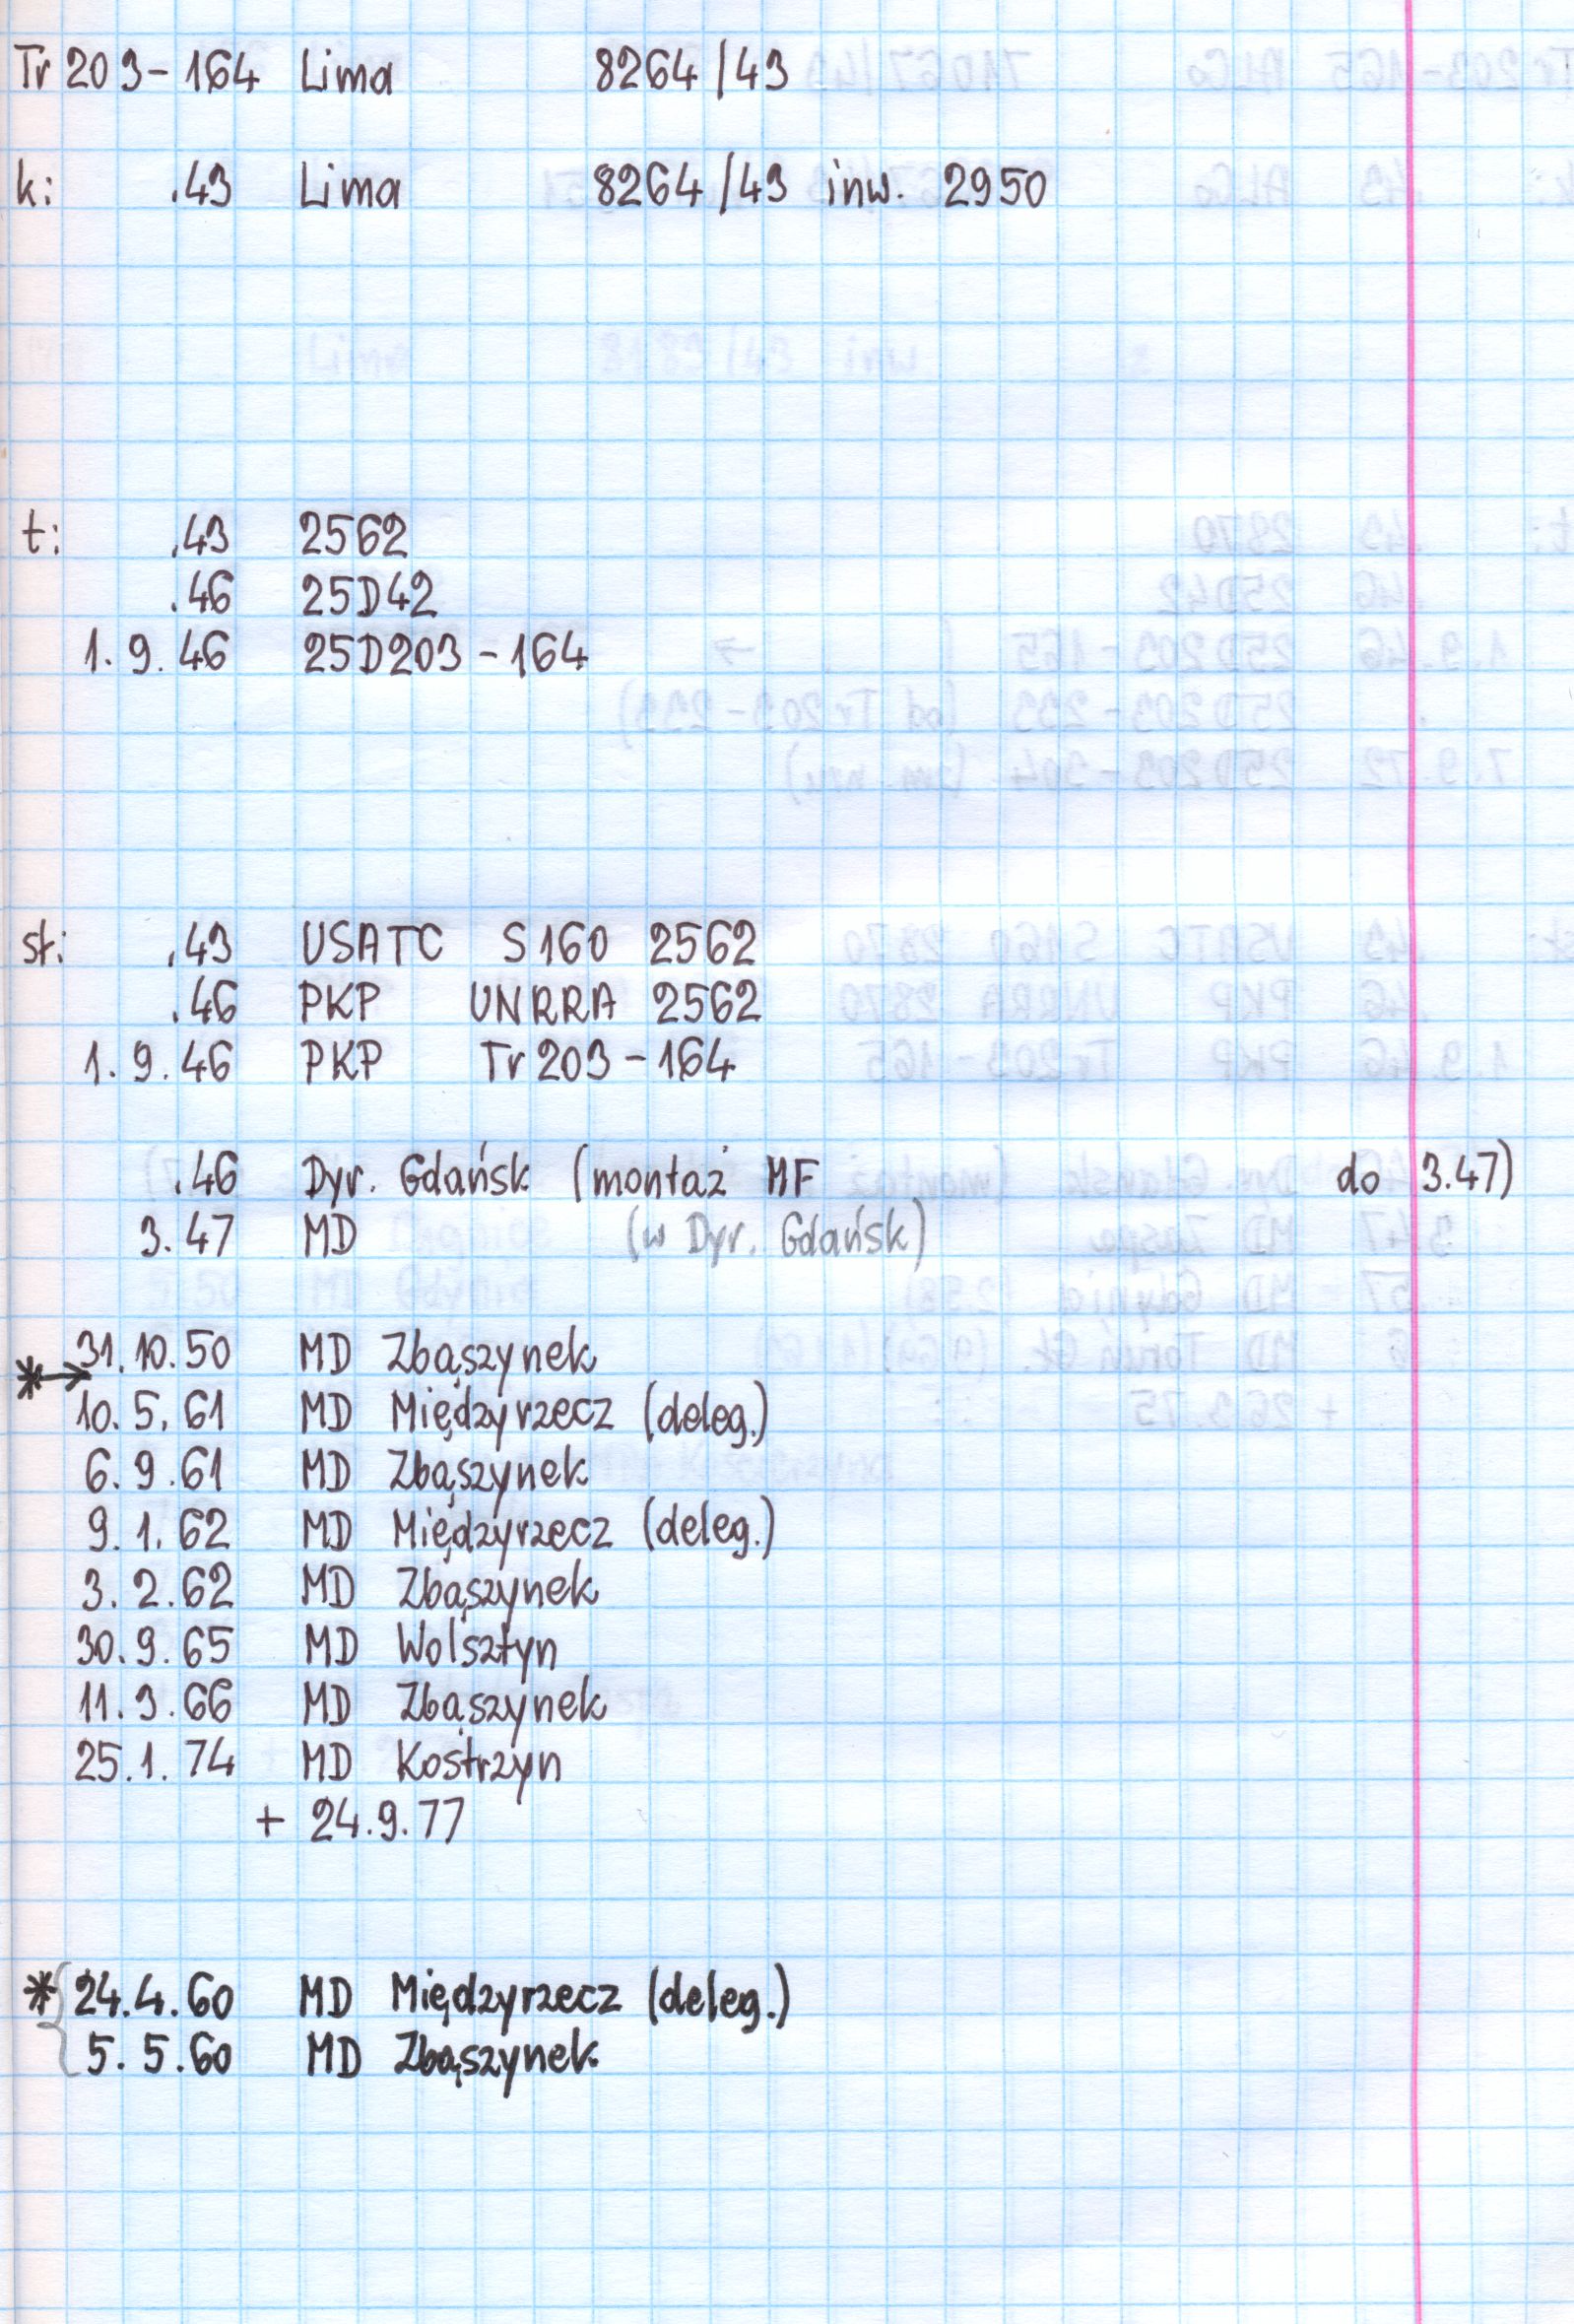 Tr 203-164 Lima 8264/43
k: .43 Lima 8264/43 inw. 2950
t: .43 2562
.46 25D42
1.9.46 25D203-164
st: .43 USATC S160 2562
.46 PKP UNRRA 2562
1.9.46 PKP Tr 203-164
.46 Dyr. Gdańsk (montaż MF do 3.47)
3.47 MD (w Dyr. Gdańsk)
31.10.50 MD Zbąszynek
*→
10.5.61 MD Międzyrzecz (deleg.)
6.9.61 MD Zbąszynek
9.1.62 MD Międzyrzecz (deleg.)
3.2.62 MD Zbąszynek
30.9.65 MD Wolsztyn
11.3.66 MD Zbąszynek
25.1.74 MD Kostrzyn
+ 24.9.77
* 24.4.60 MD Międzyrzecz (deleg.)
5.5.60 MD Zbąszynek